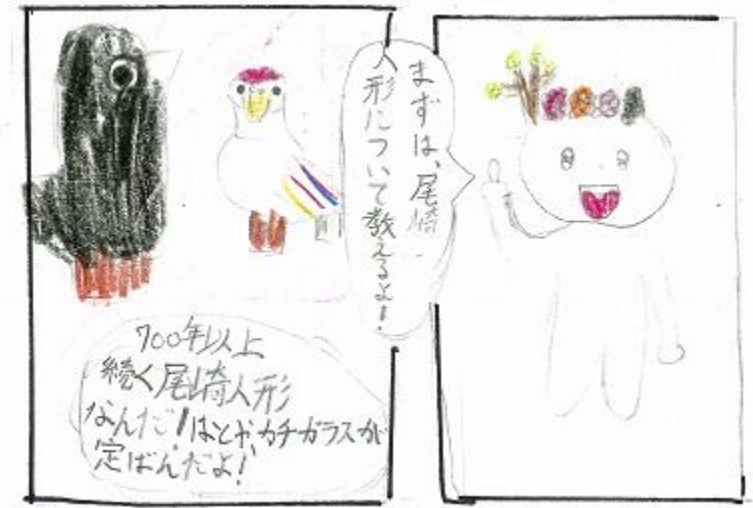 まずは、尾崎
人形について教えるよ!
700年以上
続く尾崎人形
なんだ!はとや、カチガラスが
定ばんだよ!